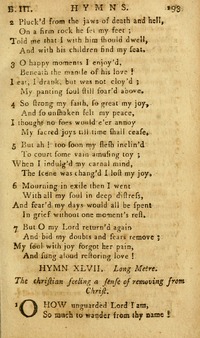 B. III. HYMNS. 193
2 Pluck'd from the jaws of death and hell,
On a firm rock he set my feet ;
Told me that I with him should dwell,
And with his children find my seat.
3 O happy moments I enjoy'd,
Beneath the mantle of his love !
I eat, I drank, but was not cloy'd ;
My panting soul still soar'd above.
4 So strong my faith, so great my joy,
And so unshaken felt my peace,
I thought no foes would e'er annoy
My sacred joys till time shall cease.
5 But ah ! too soon my flesh inclin'd
To court some vain amusing toy ;
When I indulg'd my carnal mind,
The scene was chang'd I lost my joy.
6 Mourning in exile then I went
With all my soul in deep distress,
And fear'd my days would all be spent
In grief without one moment's rest.
7 But O my Lord return'd again
And bid my doubts and fears remove ;
My soul with joy forgot her pain,
And sung aloud restoring love !
HYMN XLVII. Long Metre.
The christian feeling a sense of removing from
Christ.
1 O HOW unguarded Lord I am,
So much to wander from thy name !